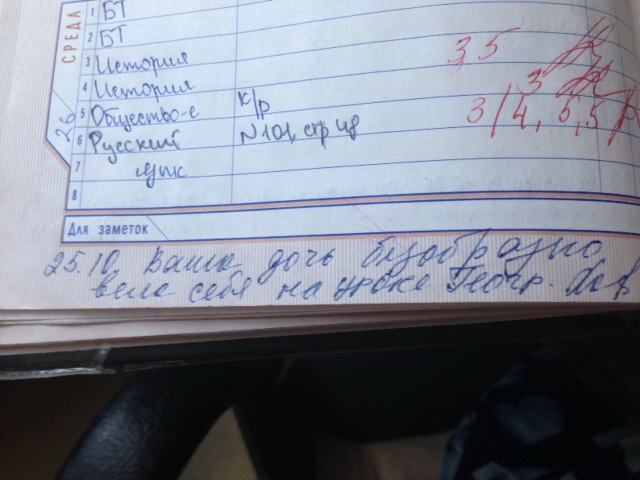 СРЕДА
26
1 БТ
2 БТ
3 История 3,5
4 История 3
5 Общество-е к/р 3/4,5,5
6 Русский N101, стр
7 язык
8
Для заметок
25.10 Ваша дочь безобразно
вела себя на уроке Геогр.